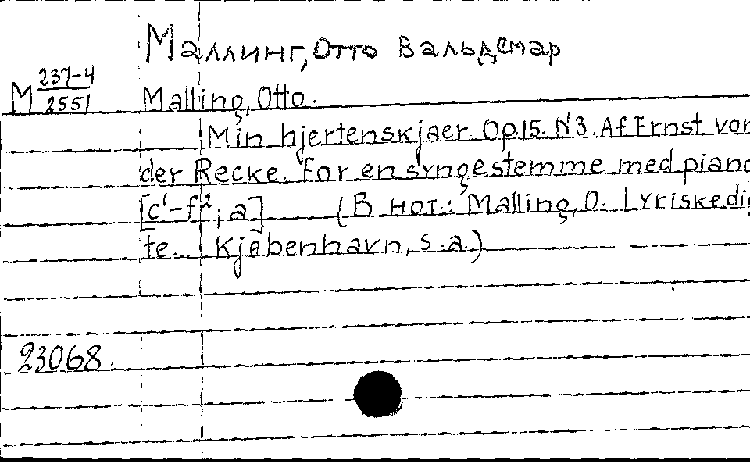 Маллинг, Отто Вальдемар
М 237-4
2551
Malling, Otto.
Min hjertenskjaer. Op.15. N3. Af Ernst von
der Recke. For en syngestemme med piano
[c¹-f², a] (В нот.: Malling, O. Lyriske dig
te. Kjøbenhavn, s.a.)
23068.